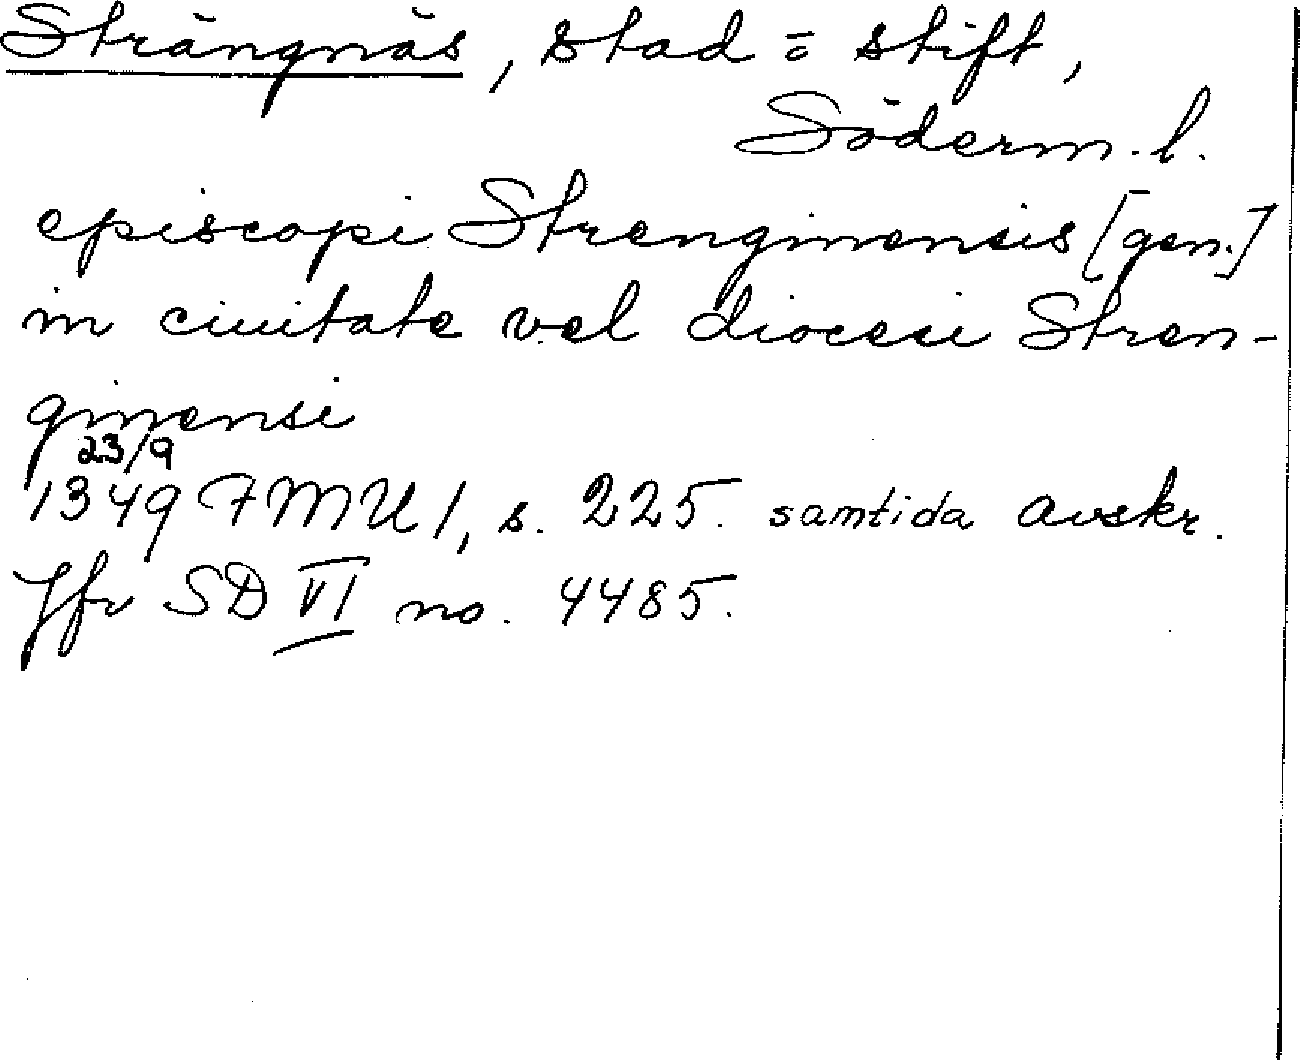 Strängnäs, stad o stift,
Söderm. l.
episcopi Strenginensis [gen.]
in ciuitate vel diocesi Stren-
ginensi
23/9
1349 FMU 1, s. 225. samtida avskr.
Jfr SD VI no. 4485.